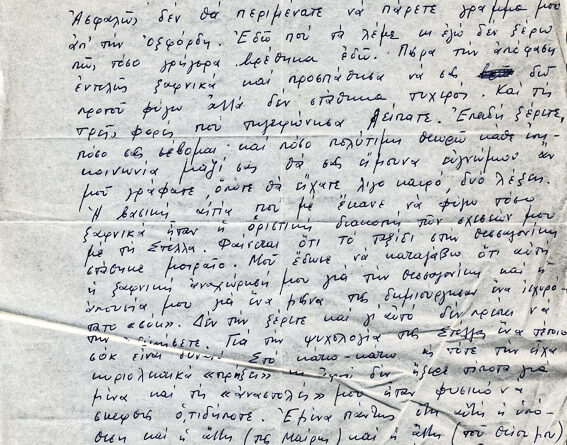 Ἀσφαλῶς δέν θά περιμένατε νά πάρετε γράμμα μου
ἀπ' τήν Ὀξφόρδη. Ἐδῶ πού τά λέμε κι ἐγώ δέν ξέρω
πῶς τόσο γρήγορα βρέθηκα ἐδῶ. Πῆρα τήν ἀπόφαση
ἐντελῶς ξαφνικά καί προσπάθησα νά σᾶς δῶ
προτοῦ φύγω ἀλλά δέν στάθηκα τυχερός. Καί τίς
τρεῖς φορές πού τηλεφώνησα λείπατε. Ἐπειδή ξέρετε,
πόσο σᾶς σέβομαι καί πόσο πολύτιμη θεωρῶ κάθε ἐπι-
κοινωνία μαζί σας θά σᾶς ἤμουνα εὐγνώμων ἄν
μοῦ γράφατε, ὅποτε θά εἴχατε λίγο καιρό, δυό λέξεις.
Ἡ βασική αἰτία πού μέ ἔκανε νά φύγω τόσο
ξαφνικά ἦταν ἡ ὁριστική διακοπή τῶν σχέσεών μου
μέ τή Στέλλα. Φαίνεται ὅτι τό ταξίδι στήν Θεσσαλονίκη
στάθηκε μοιραῖο. Μοῦ ἔδωσε νά καταλάβω ὅτι αὐτή
ἡ ξαφνική ἀναχώρησή μου γιά τήν Θεσσαλονίκη καί ἡ
ἀπουσία μου γιά ἕνα μήνα τῆς δημιούργησαν ἕνα ἰσχυρό-
τατο «σόκ». Δέν τήν ξέρετε καί γι αὐτό δέν πρέπει νά
τήν Γιά τήν ψυχολογία τῆς Στέλλας ἕνα τέτοιο
σόκ εἶναι Στό κάτω-κάτω τῆς τότε τήν εἶχα
κυριολεκτικά «πρήξει» κι δέν ἤξερε τίποτα γιά
μένα καί τίς «ἀναστολές» μου ἦταν φυσικό νά
σκεφθεῖ ὁτιδήποτε. Ἔμεινα αὐτή ἡ ὑπό-
θεση καί ἡ ἄλλη (τῆς Μαίρης) καί ἡ ἄλλη (τοῦ θείου μου)